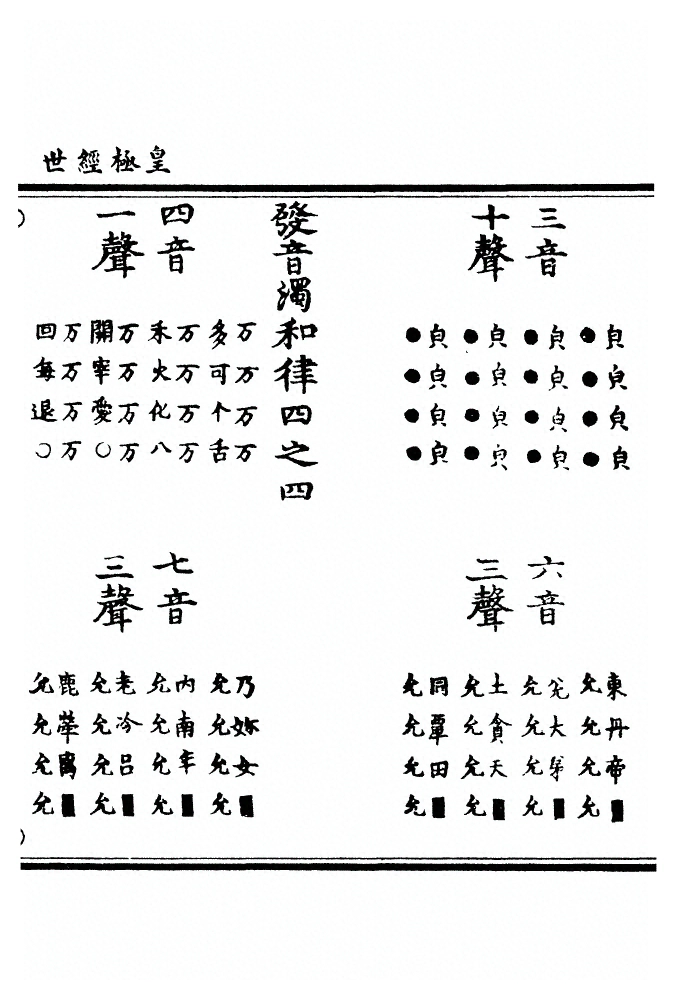 皇極經世
三音
十聲
皃皃皃皃
●●●●
皃皃皃皃
●●●●
皃皃皃皃
●●●●
皃皃皃皃
●●●●
六音
三聲
東丹帝■
允允允允
兌大弟■
允允允允
土貪天■
允允允允
同覃田■
允允允允
發音濁和律四之四
四音
一聲
万万万万
多可个舌
万万万万
禾火化八
万万万万
開宰愛○
万万万万
回每退○
七音
三聲
乃妳女■
允允允允
內南年■
允允允允
老冷呂■
允允允允
鹿犖离■
允允允允